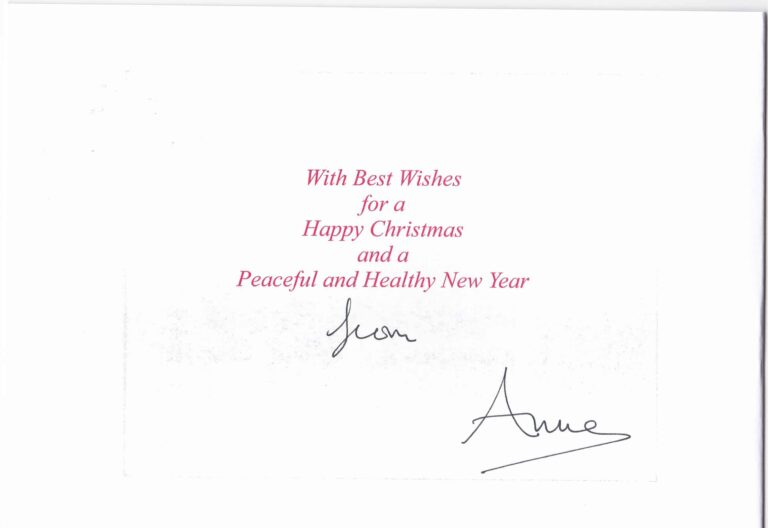 With Best Wishes
for a
Happy Christmas
and a
Peaceful and Healthy New Year
from
Anne